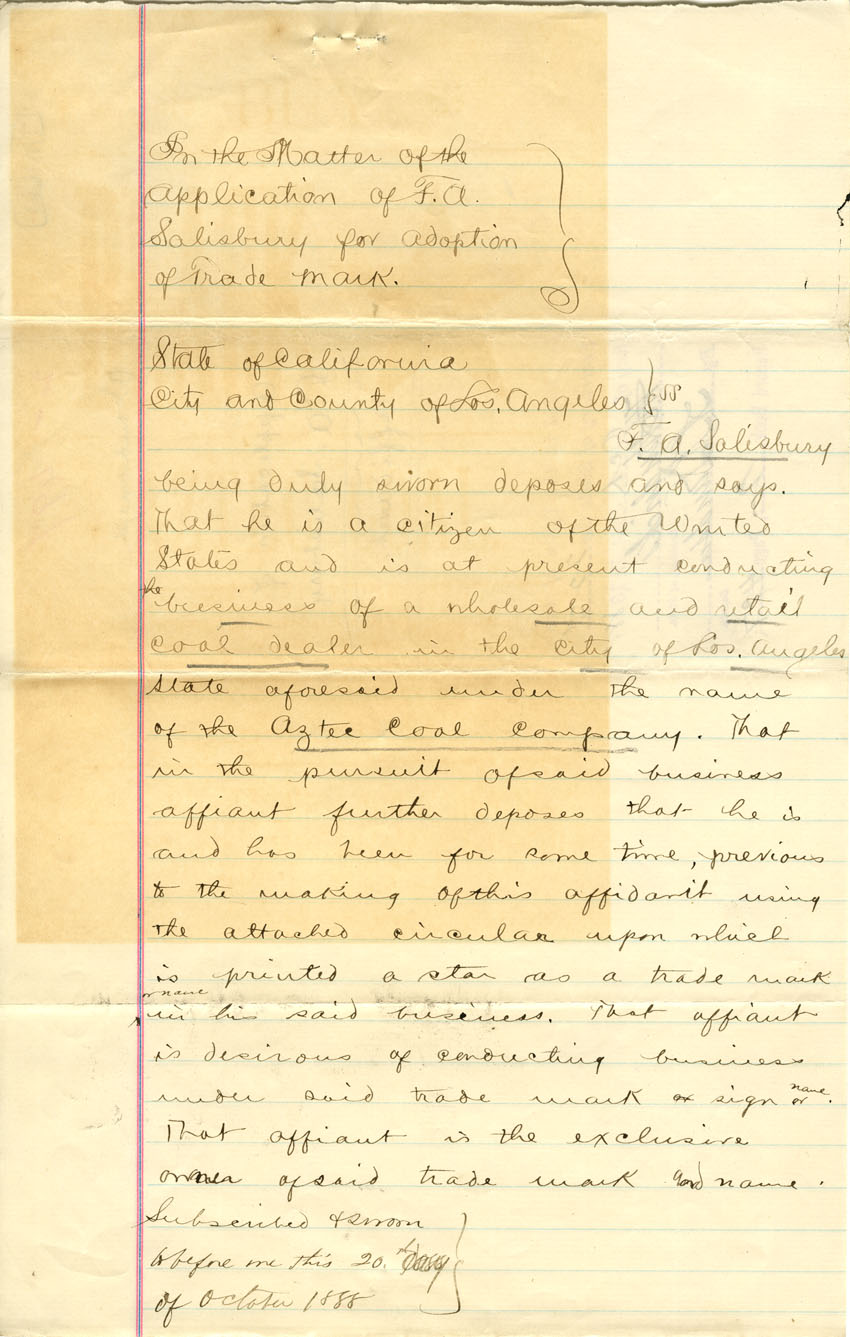 In the Matter of the
application of F. A.
Salisbury for adoption
of Trade Mark.
State of California
City and County of Los. Angeles } ss
F. A. Salisbury
being duly sworn deposes and says.
That he is a citizen of the United
States and is at present conducting
the
business of a wholesale and retail
coal dealer in the city of Los. Angeles
state aforesaid under the name
of the Aztec Coal Company. That
in the pursuit of said business
affiant further deposes that he is
and has been for some time, previous
to the making of this affidavit using
the attached circular upon which
is printed a star as a trade mark
or name
in his said business. That affiant
is desirous of conducting business
name
under said trade mark or sign or.
That affiant is the exclusive
owner of said trade mark and name.
Subscribed & sworn
to before me this 20.th day
of October 1888